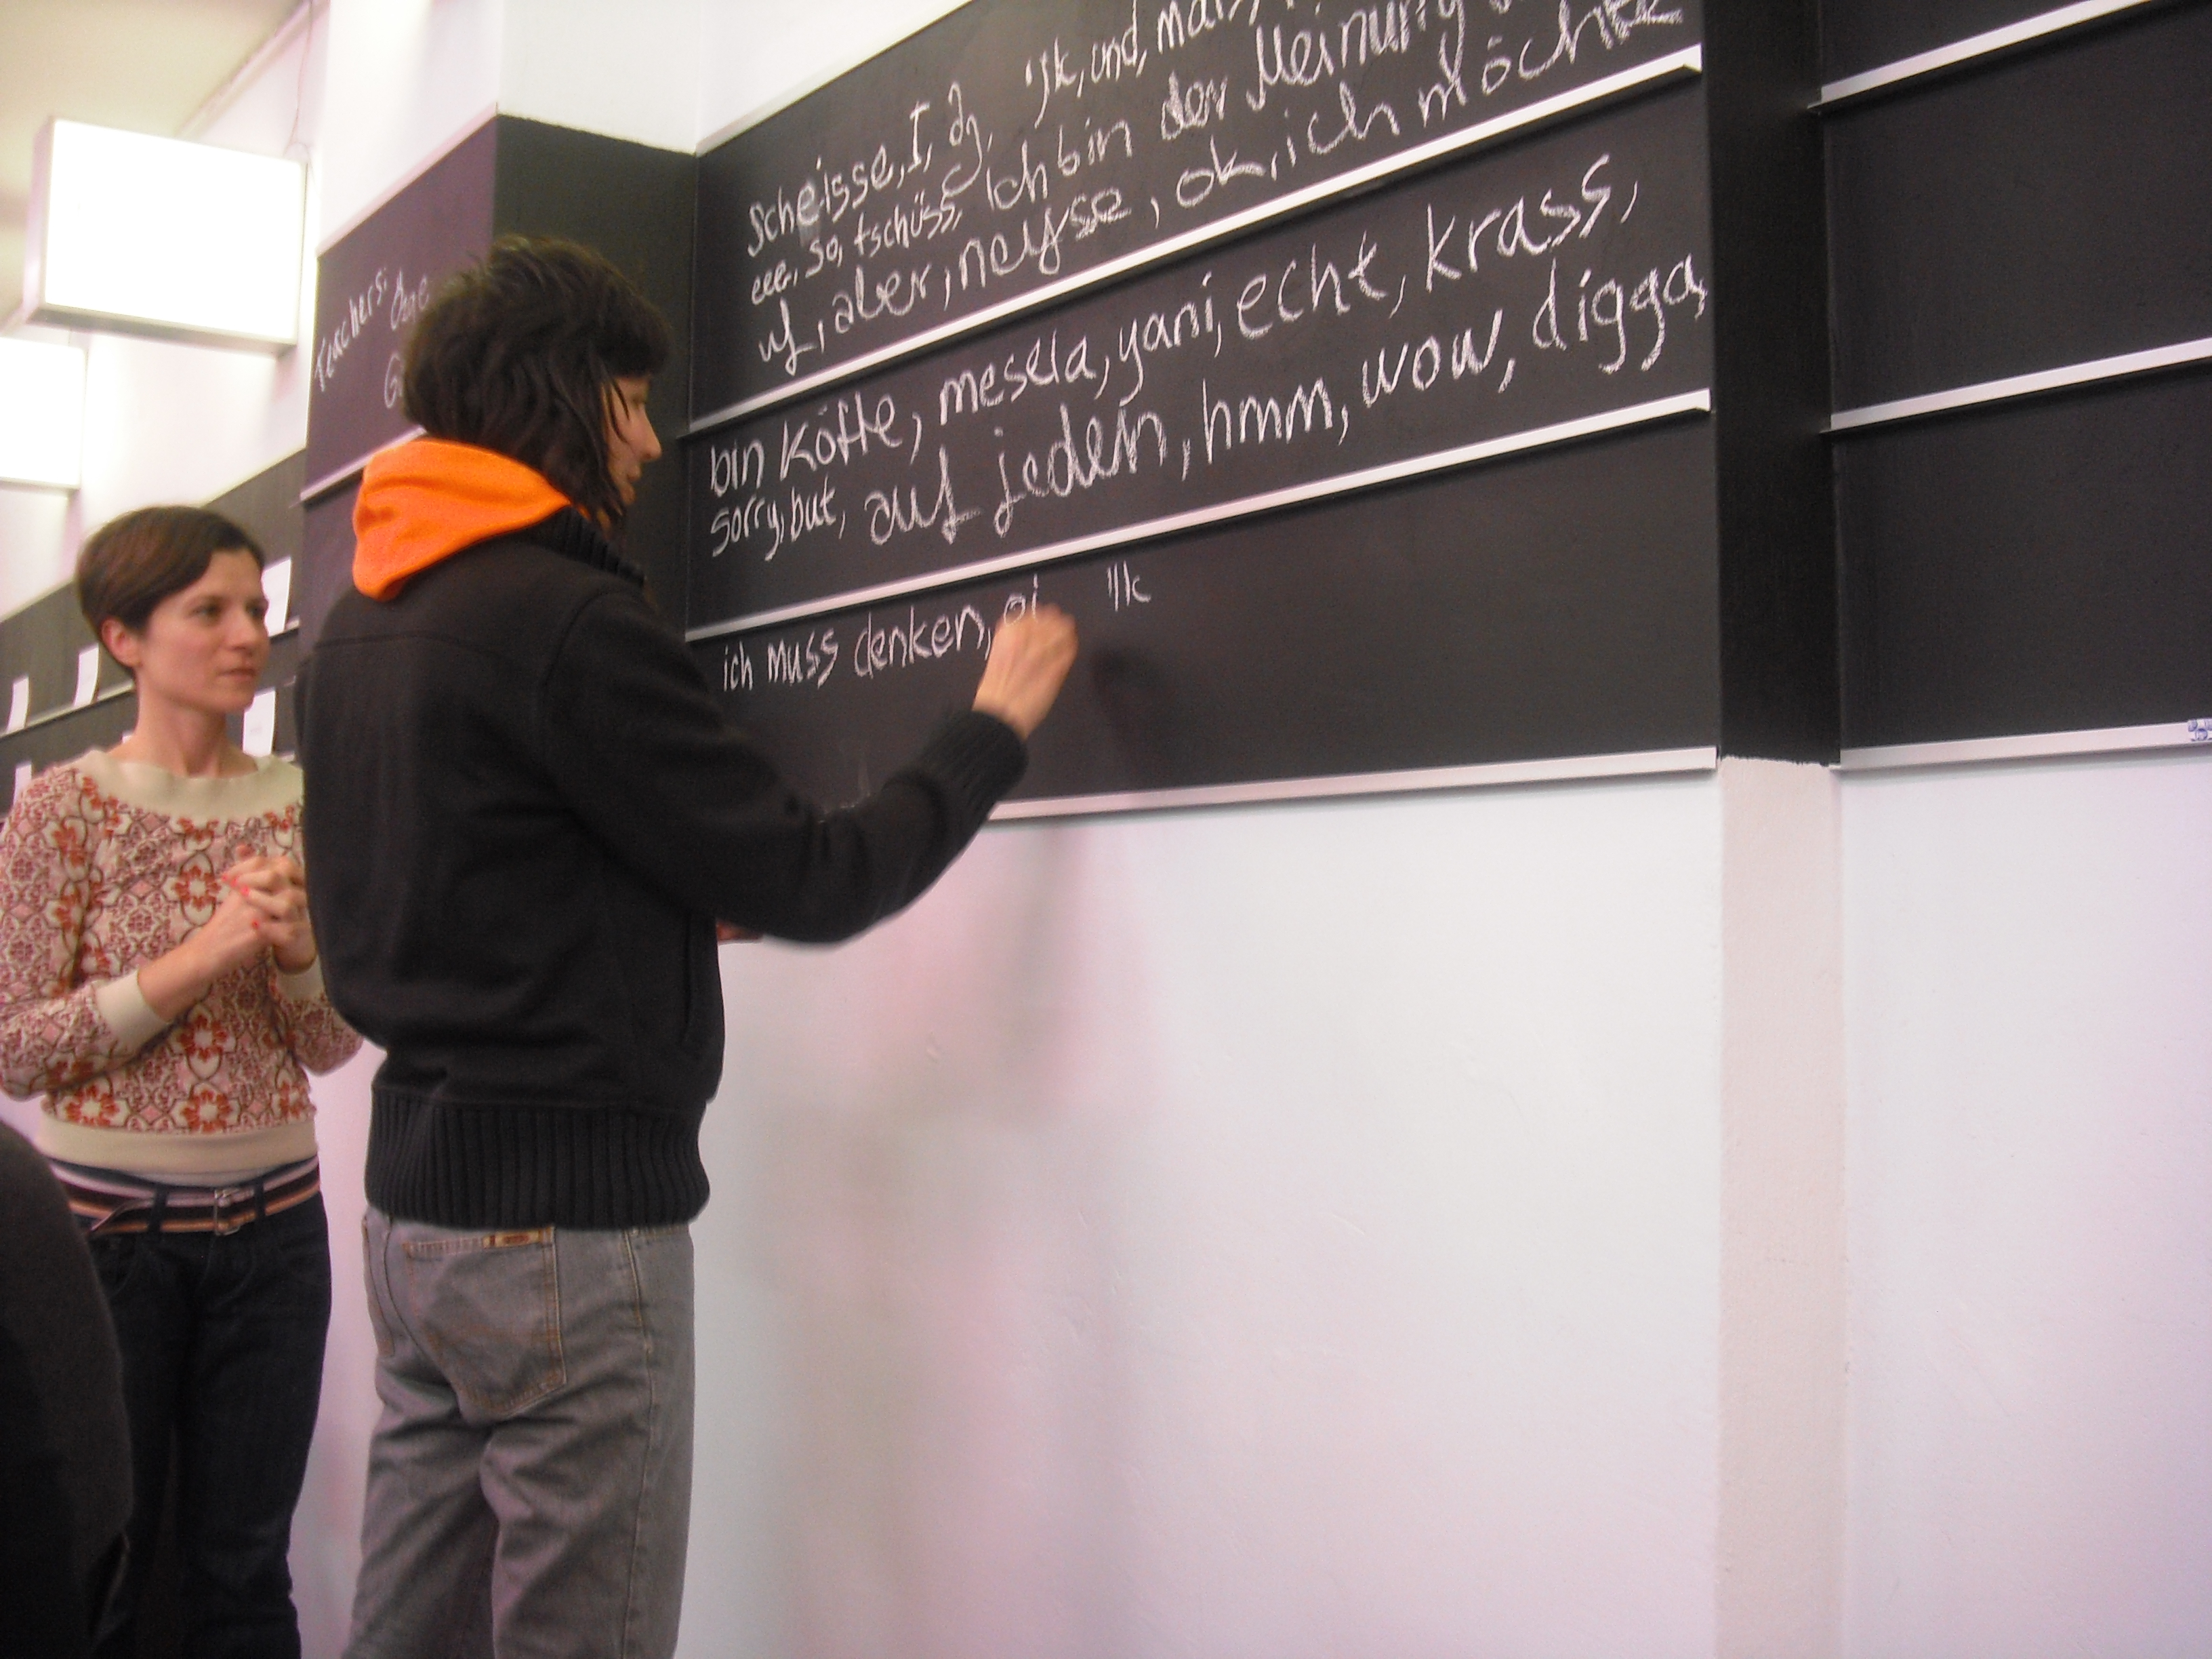 Teachers:
Scheisse, I, und,
eee, so, tschüss, Ich bin der Meinung
uf, aber, neyse, ok, ich möchte
bin Köfte, mesela, yani, echt, krass,
sorry, but, auf jeden, hmm, wow, digga,
ich muss denken,